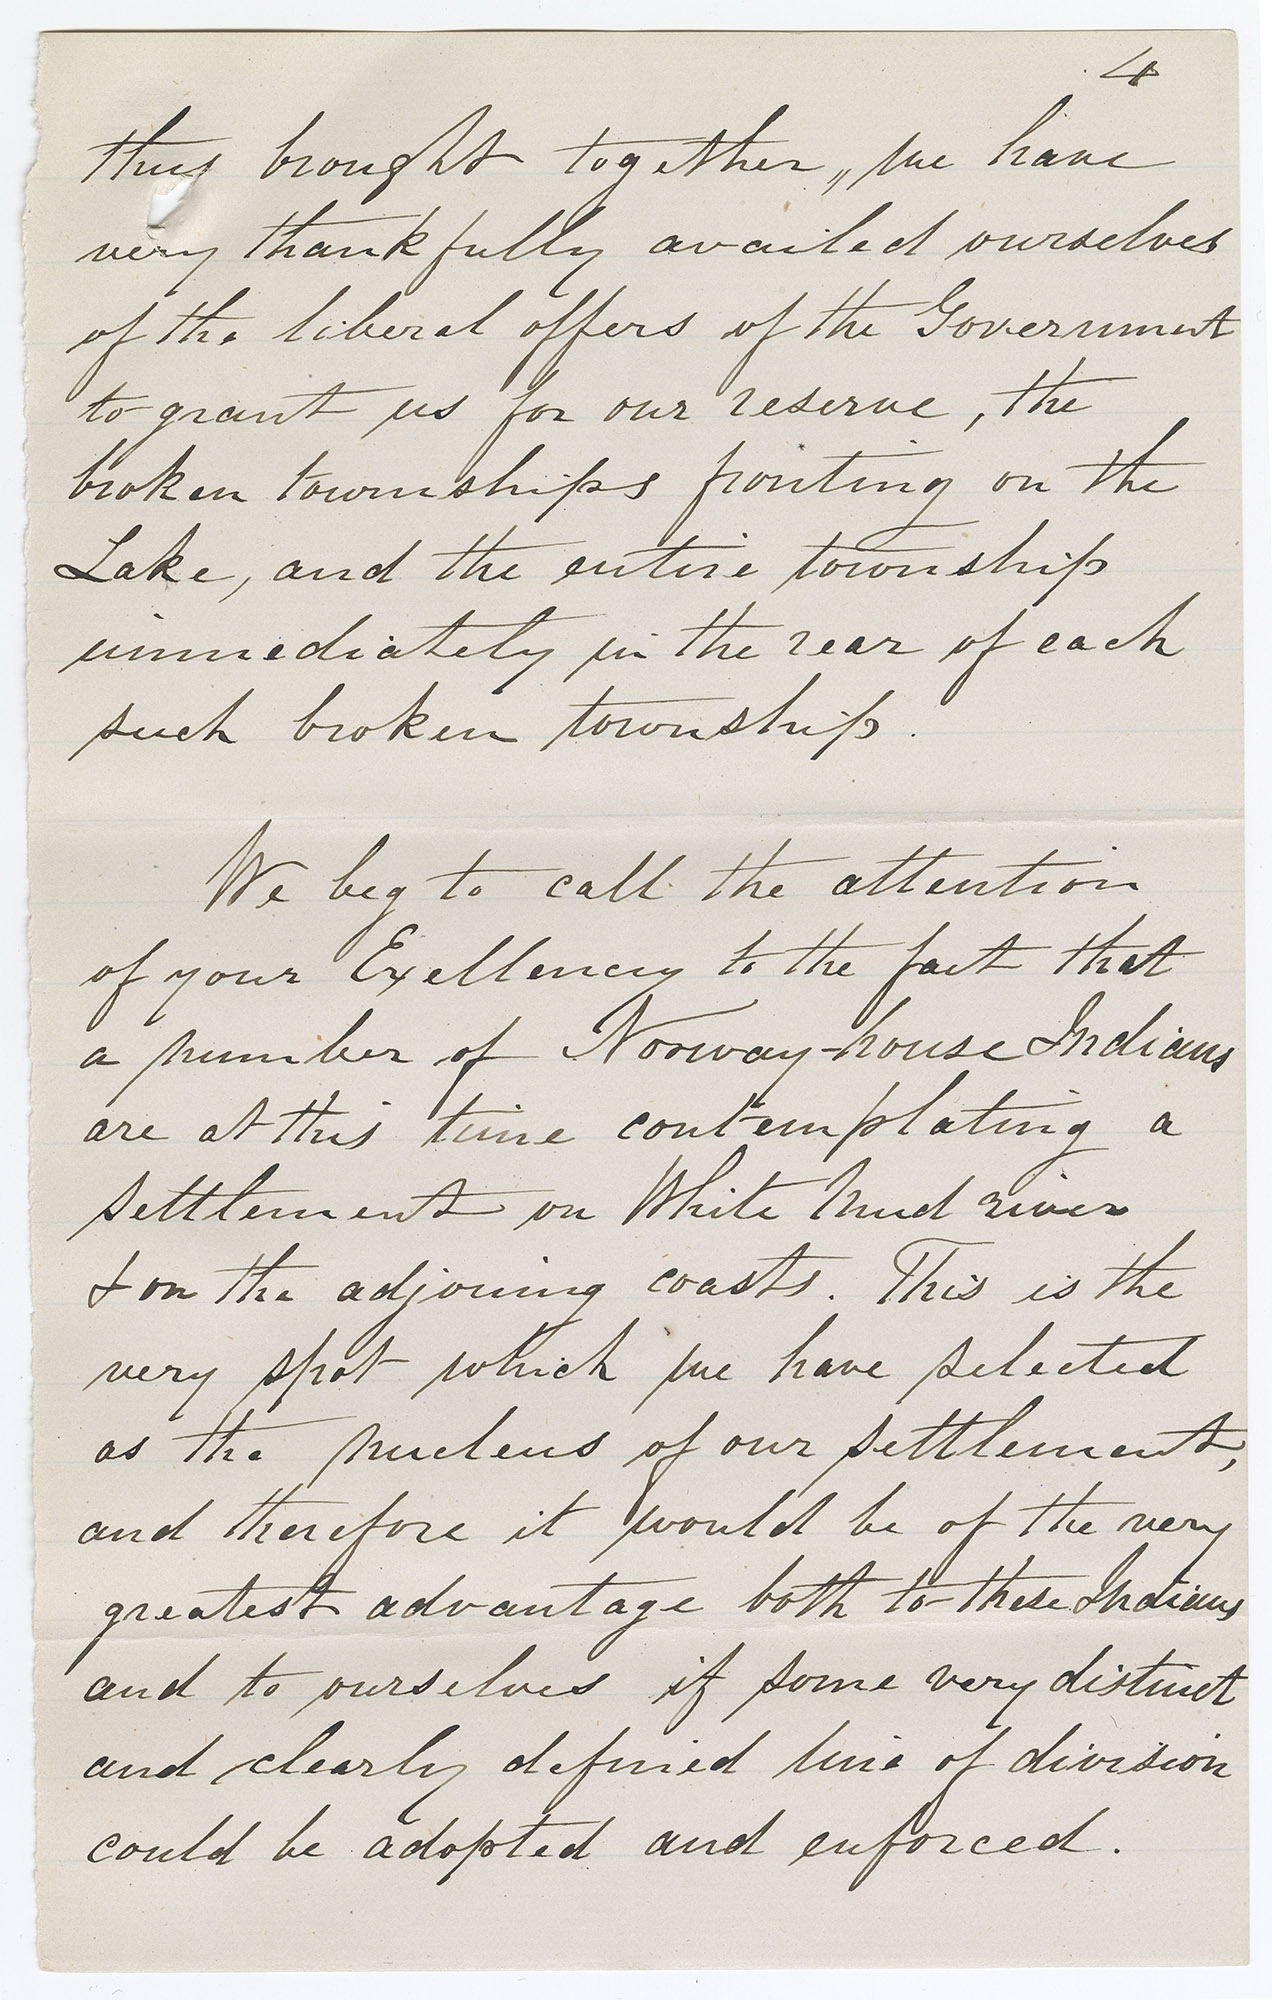 4
thus brought together,, we have
very thankfully availed ourselves
of the liberal offers of the Government
to grant us for our reserve, the
broken townships fronting on the
Lake, and the entire township
immediately in the rear of each
such broken township.
We beg to call the attention
of your Exellency to the fact that
a number of Norway-house Indians
are at this time contemplating a
settlement on White Mud river
& on the adjoining coasts. This is the
very spot which we have selected
as the nucleus of our settlement,
and therefore it would be of the very
greatest advantage both to these Indians
and to ourselves if some very distinct
and clearly defined line of division
could be adopted and enforced.